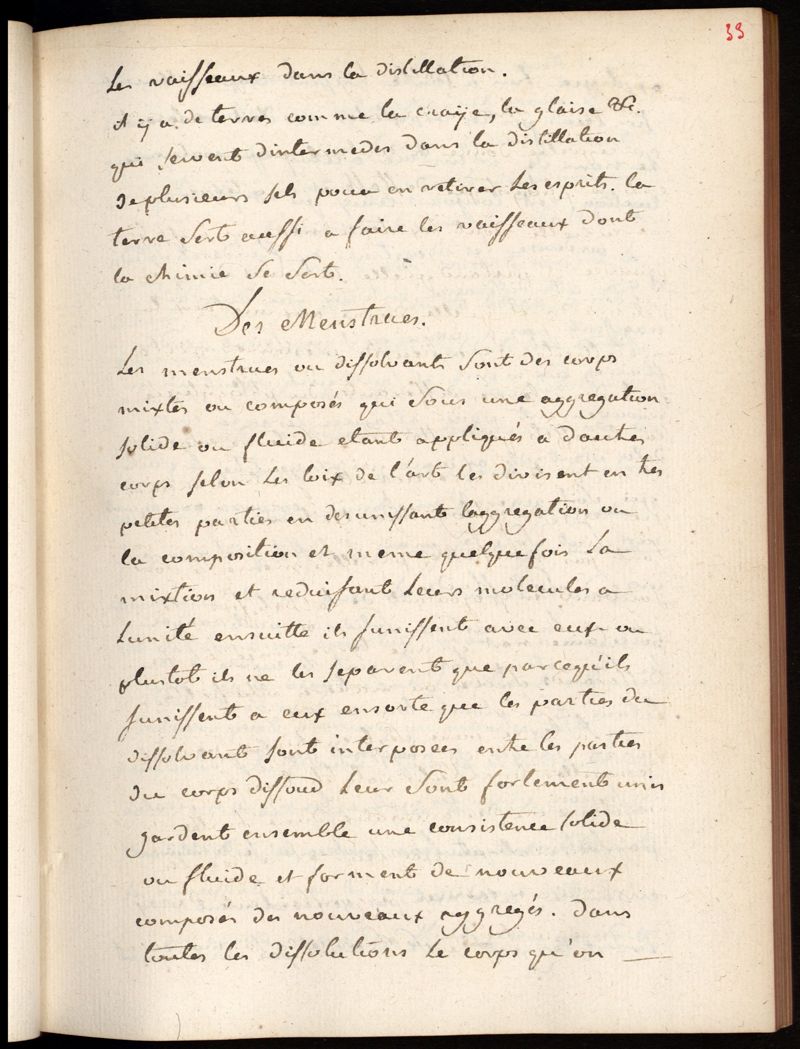 33
les vaisseaux dans la distillation.
il y a de terres comme la craÿe, la glaise &c.
qui servent dintermedes dans la distillation
de plusieurs sels pour en retirer les esprits. la
terre sert aussi a faire les vaisseaux dont
la chimie se sert.
Des Menstrues.
Les menstrues ou dissolvants sont des corps
mixtes ou composés qui sous une aggregation
solide ou fluide etant appliqués a dautres
corps selon les loix de l'art les divisent en tres
petites parties en desunissant laggregation ou
la composition et meme quelquefois la
mixtion et reduisant leurs molecules a
lunité ensuitte ils sunissent avec eux ou
plustot ils ne les separent que parcequ'ils
sunissent a eux ensorte que les parties du
dissolvant sont interposées entre les parties
du corps dissoud leur sont fortement unis
gardent ensemble une consistence solide
ou fluide et forment de nouveaux
composés des nouveaux aggregés. dans
toutes les dissolutions le corps qu'on